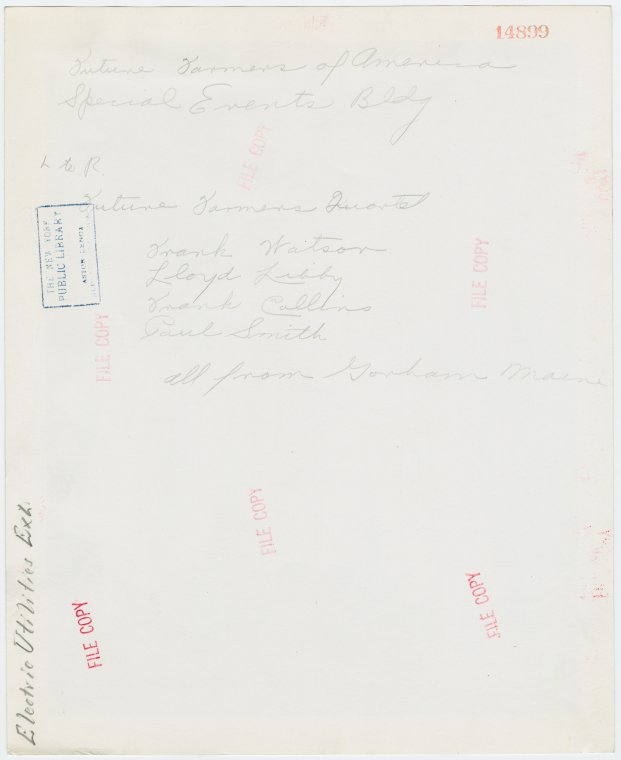 14899
Future Farmers of America
Special Events Bldg
L to R.
Future Farmers Quartet
Frank Watson
Lloyd Libby
Frank Collins
Paul Smith
all from Gorham Maine
THE NEW YORK
PUBLIC LIBRARY
ASTOR LENOX
FILE COPY
FILE COPY
FILE COPY
FILE COPY
FILE COPY
FILE COPY
Electric Utilities Exh.